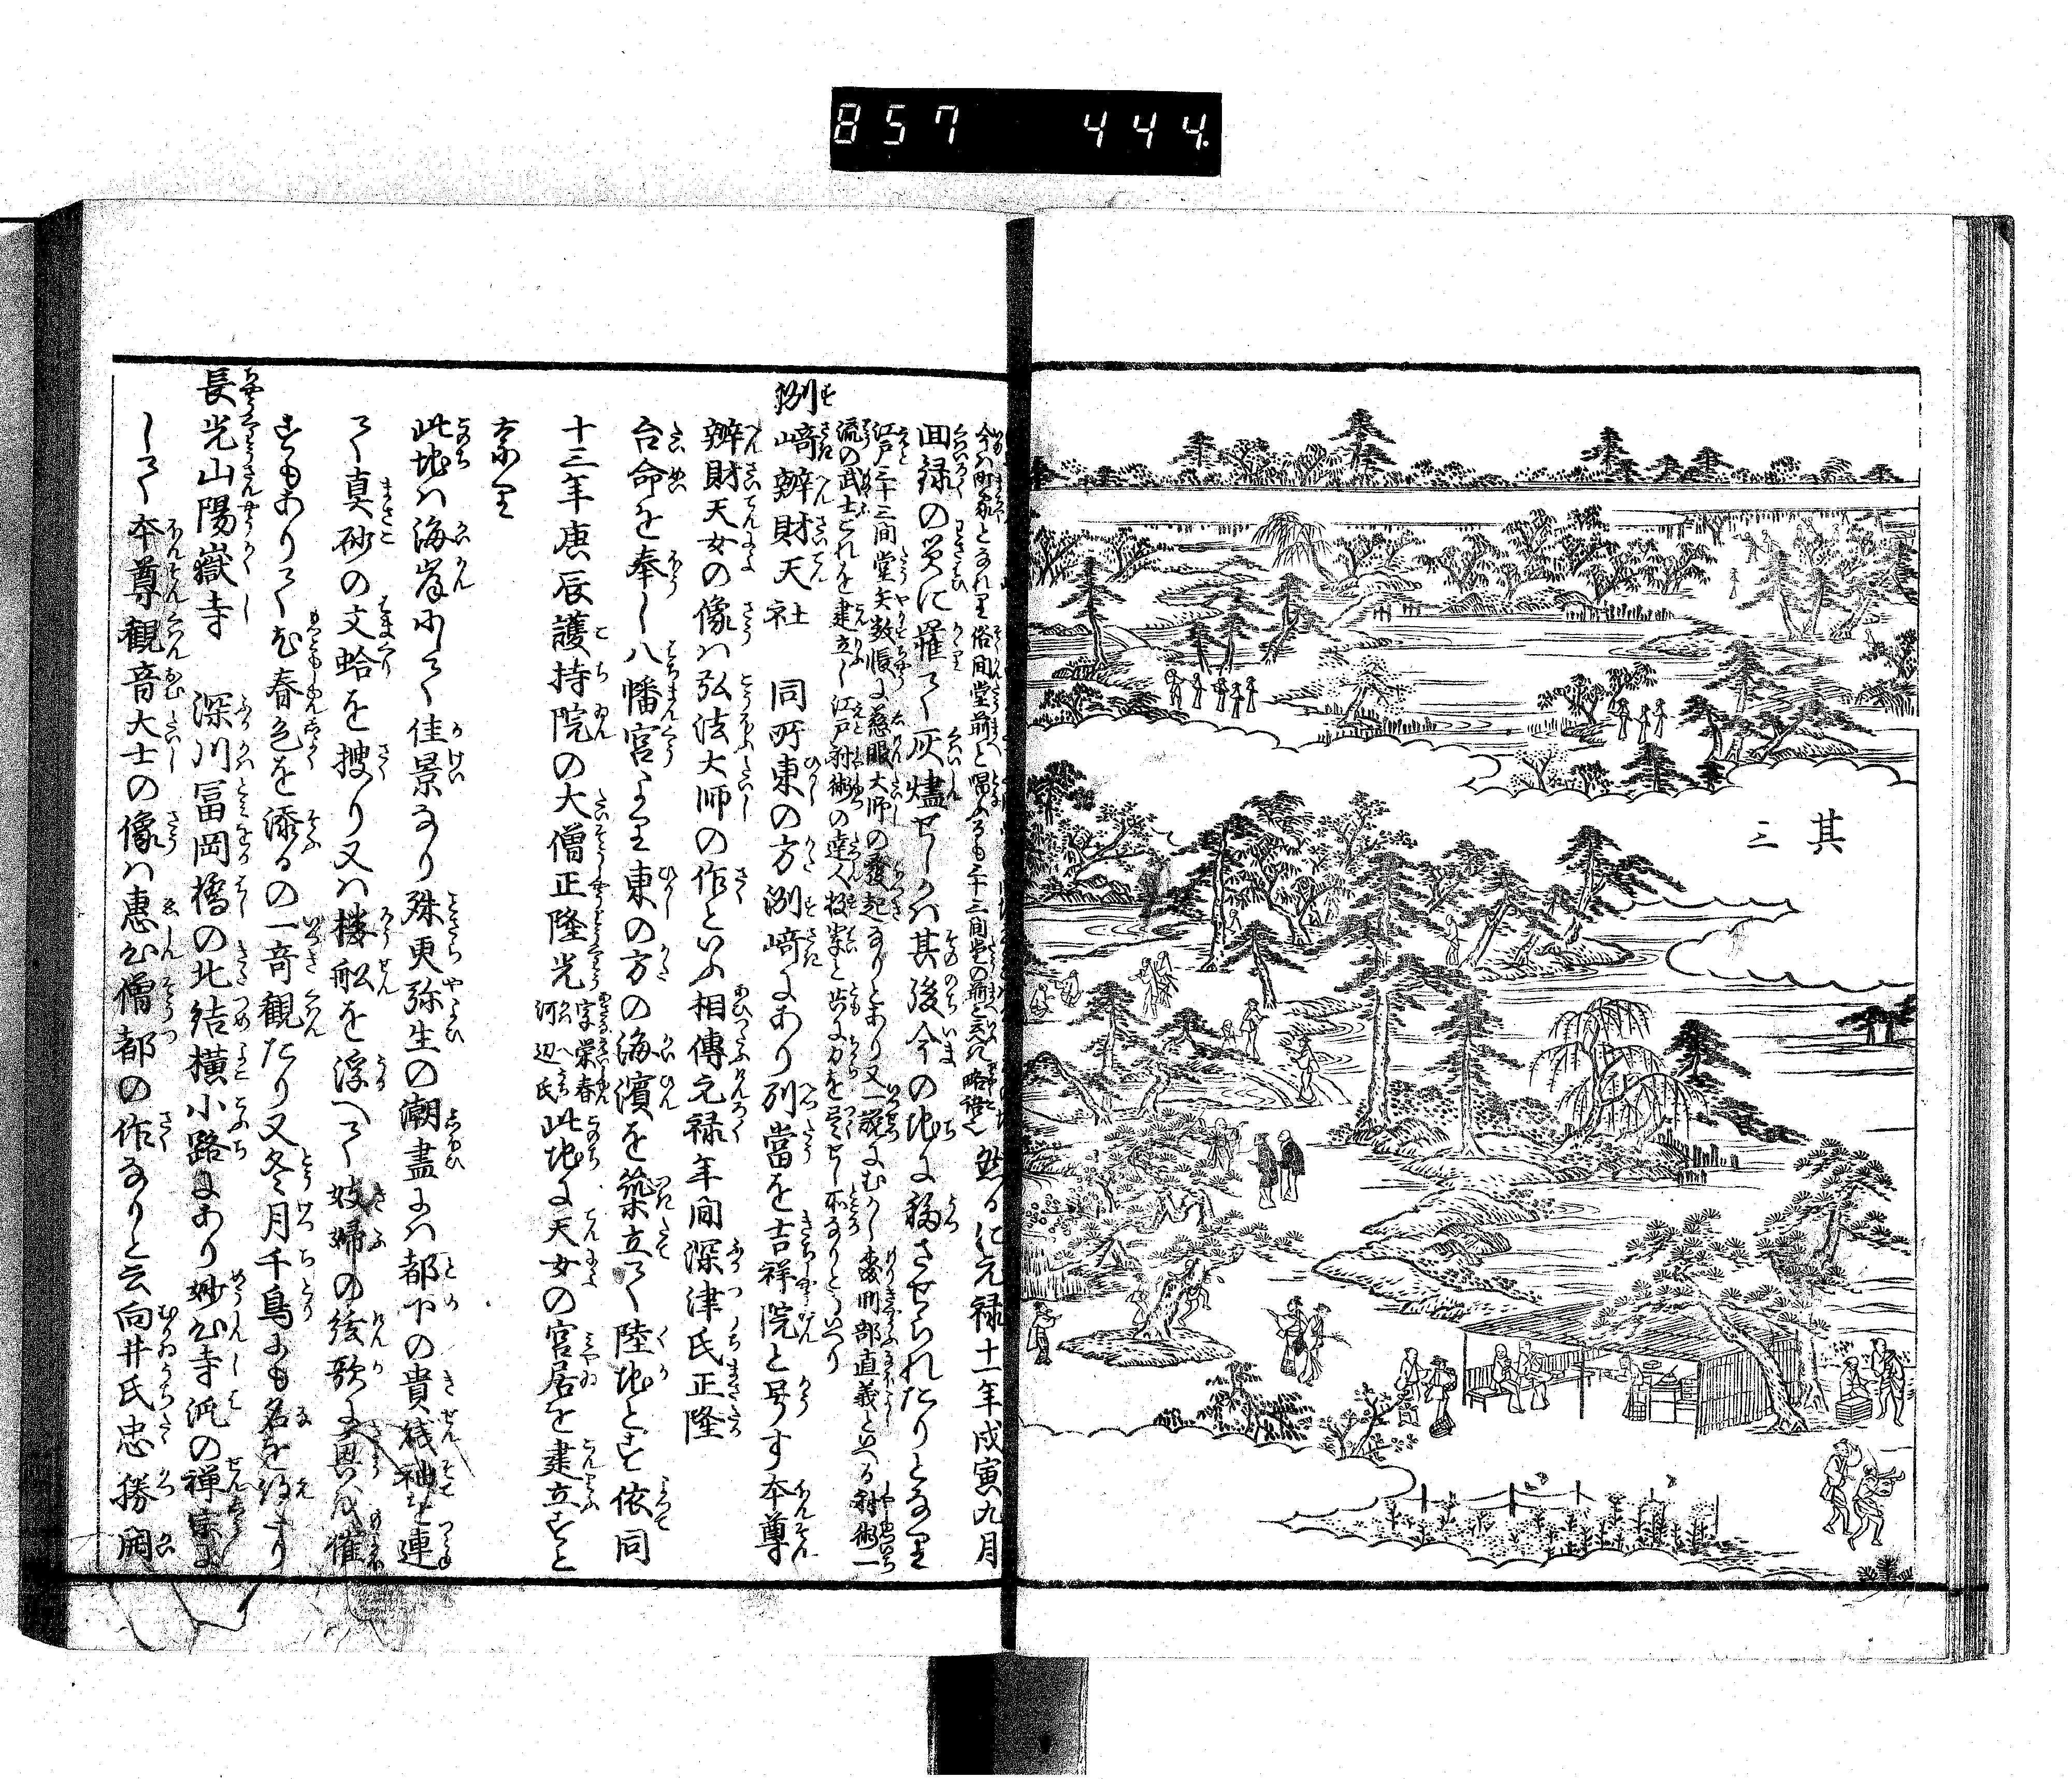 857 444.
其
三
今ハ町家となれり俗間堂前と唱ふるも三十三間堂の前と云へる略語也然るに元禄十一年戊寅九月
回禄の災に罹て灰燼せしかハ其後今の地に移させられたりとなり
江戸三十三間堂矢数帳に慈眼大師の發起なりとあり又一説にむかし備後刑部直義といへる射術一
流の武士これを建立し江戸射術の達人
﨑辧財天社 同所東の方洌﨑にあり別當を吉祥院と号す本尊
辧財天女の像ハ弘法大師の作といふ相傳元禄年間深津氏正隆
台命を奉し八幡宮より東の方の海濱を築立て陸地とす依同
十三年庚辰護持院の大僧正隆光字栄春河辺氏此地に天女の宮居を建立すと
なり
此地ハ海岸にして佳景なり殊更弥生の潮盡にハ都下の貴賎袖を連
て真砂の文蛤を捜り又ハ樓舩を浮へて妓婦の絃歌に興を催
すもありて尤春色を添るの一奇観たり又冬月千鳥にも名を得たり
長光山陽嶽寺 深川冨岡橋の北結横小路にあり妙心寺派の禅宗に
して本尊觀音大士の像ハ惠心僧都の作なりと云向井氏忠勝開